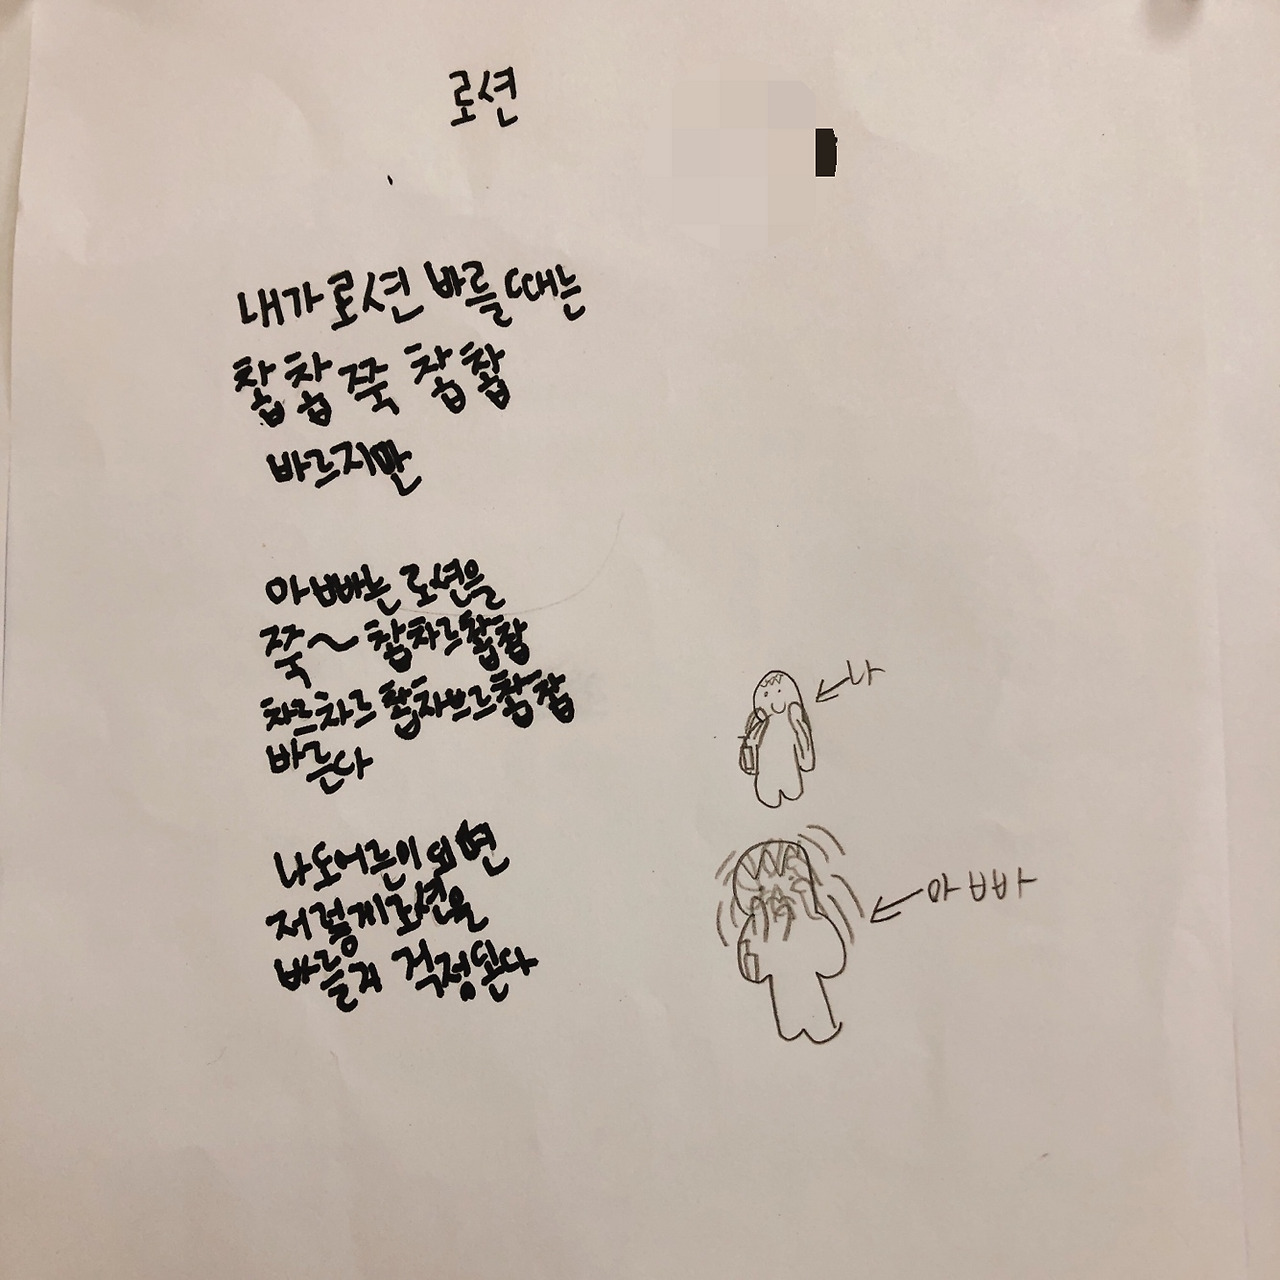 로션
내가 로션 바를 때는
찹찹 쭉 찹찹
바르지만
아빠는 로션을
쭉~ 찹차르찹찹
차르차르 찹차브르찹찹
바른다
나
나도 어른이 되면
저렇게 로션을
바를지 걱정된다
아빠